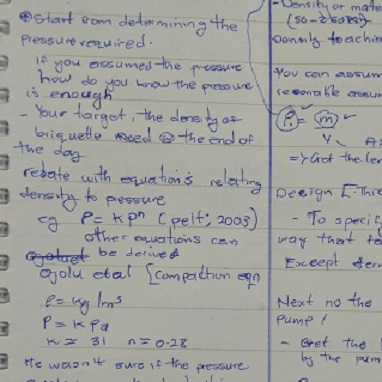 Start from determining the
Pressure required.
if you assumed the pressure
how do you know the pressure
is enough
- Your target, the density of
briquette need @ the end of
the day
relate with equations relating
density to pressure
eg ρ = k pⁿ (pelt; 2003)
other equations can
be derived
ojolu etal {compaction eqn
ρ = kg/m³
P = k Pa
k = 31 n = 0.28
He wasn't sure if the pressure
- Density or mate
(50 -
Density to achie
You can assum
resonable assum
=> Got the len
Design
- To specif
way that
Except
Next no the
Pump!
- Get the
by the pum